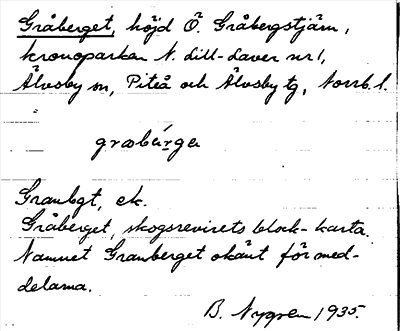 Gråberget, höjd Ö. Gråbergstjärn,
kronoparken N. Lill-Laver nr 1,
Älvsby sn, Piteå och Älvsby tg, Norrb. l.
grabärga
Granbgt, ek.
Gråberget, skogsrevirets block-karta.
Namnet Granberget okänt för med-
delarna.
B. Nygren 1935.